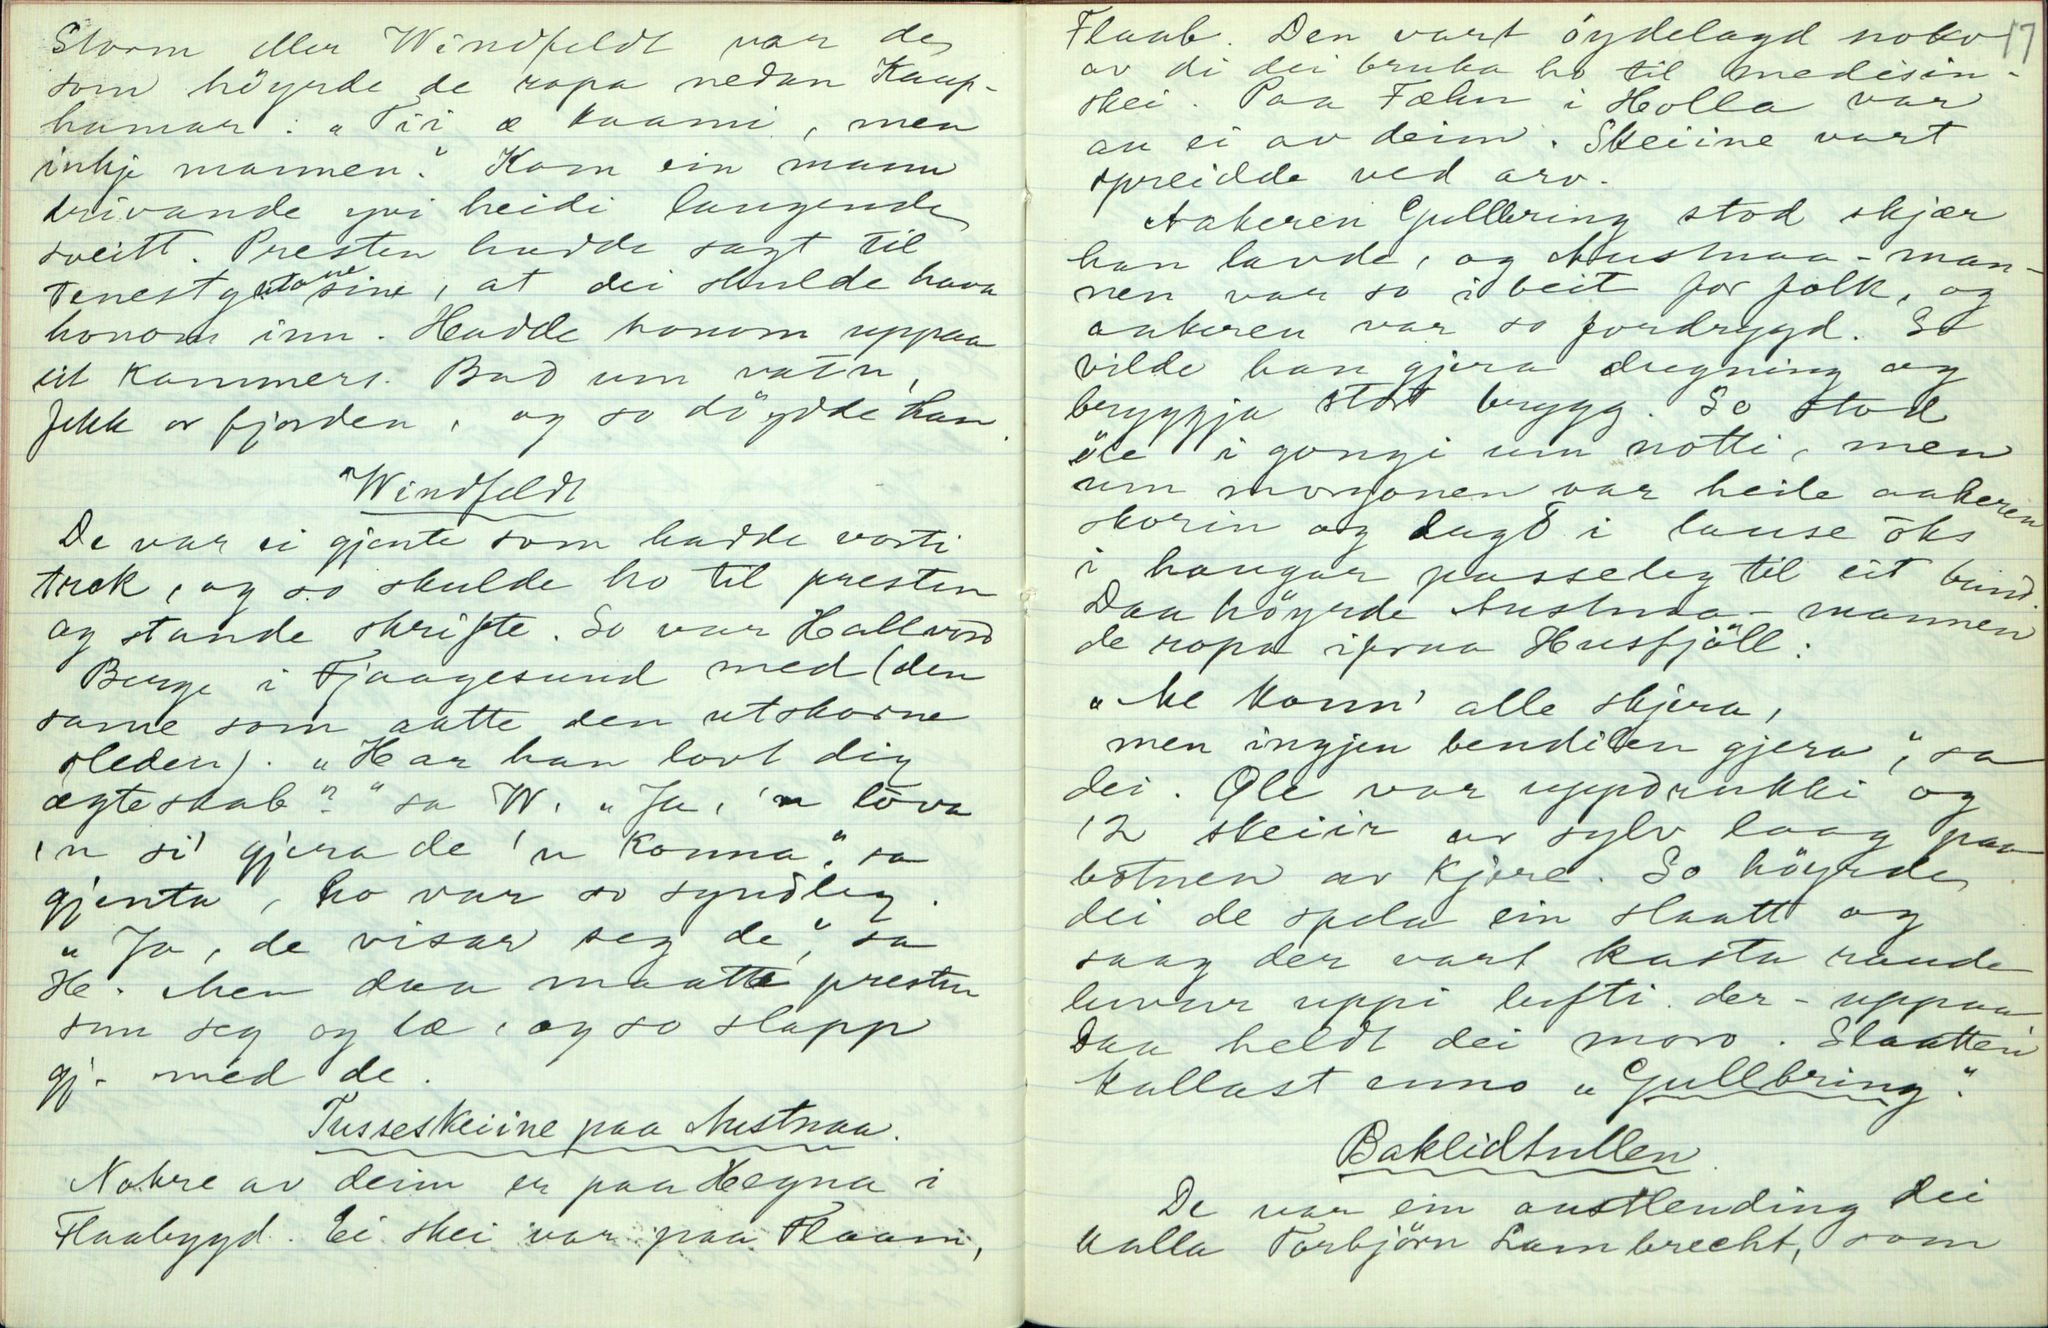 Storm eller Windfeldt var de
som höyrde de ropa nedan Kaup-
hamar: „Tii æ kaami, men
inkje mannen." Kom ein mann
drivande yvi heidi laugende
sveitt. Presten hadde sagt til
tenestgutane sine, at dei skulde hava
honom inn. Hadde honom uppaa
eit kammers. Bad um vatn,
fekk or fjorden, og so döydde han.
Windfeldt
De var ei gjente som hadde vorti
trok, og so skulde ho til presten
og stande skrifte. So var Hallvord
Berge i Fjaagesund med (den
same som aatte den utskorne
sleden). „Har han lovt dig
ægteskab?" sa W. „Ja, 'n lova
'n si' gjera de 'n konna," sa
gjenta, ho var so syndleg.
„Ja, de visar seg de," sa
H. Men daa maatte presten
snu seg og læ, og so slapp
gj. med de.
Tusseskeiine paa Austnaa.
Nokre av deim er paa Hegna i
Flaabygd. Ei skei var paa Flaam,
17
Flaab. Den vart öydelagd noko
av di dei bruka ho til medisin-
skei. Paa Fæhn i Holla var
au ei av deim. Skeiine vart
spreidde ved arv.
Aakeren Gullbring stod skjær
han lavde, og Austnaa-man-
nen var so i beit for folk, og
aakeren var so fordrygd. So
vilde han gjera dregning og
bryggja stort brygg. So stod
öle i gongi um notti, men
um morgonen var heile aakeren
skorin og lagd i lause öks
i haugar passeleg til eit bund.
Daa höyrde Austnaa-mannen
de ropa ifraa Husfjöll:
„Me konn' alle skjera,
men ingjen bendilen gjera", sa
dei. Öle var uppdrukki og
12 skeiir av sylv laag paa
botnen av kjere. So höyrde
dei de spela ein slaatt og
saag der vart kasta raude
luvur uppi lufti der-uppaa.
Daa heldt dei moro. Slaatten
kallast enno „Gullbring".
Baklidkullen.
De var ein austlending dei
kalla Torbjörn Lambrecht, som